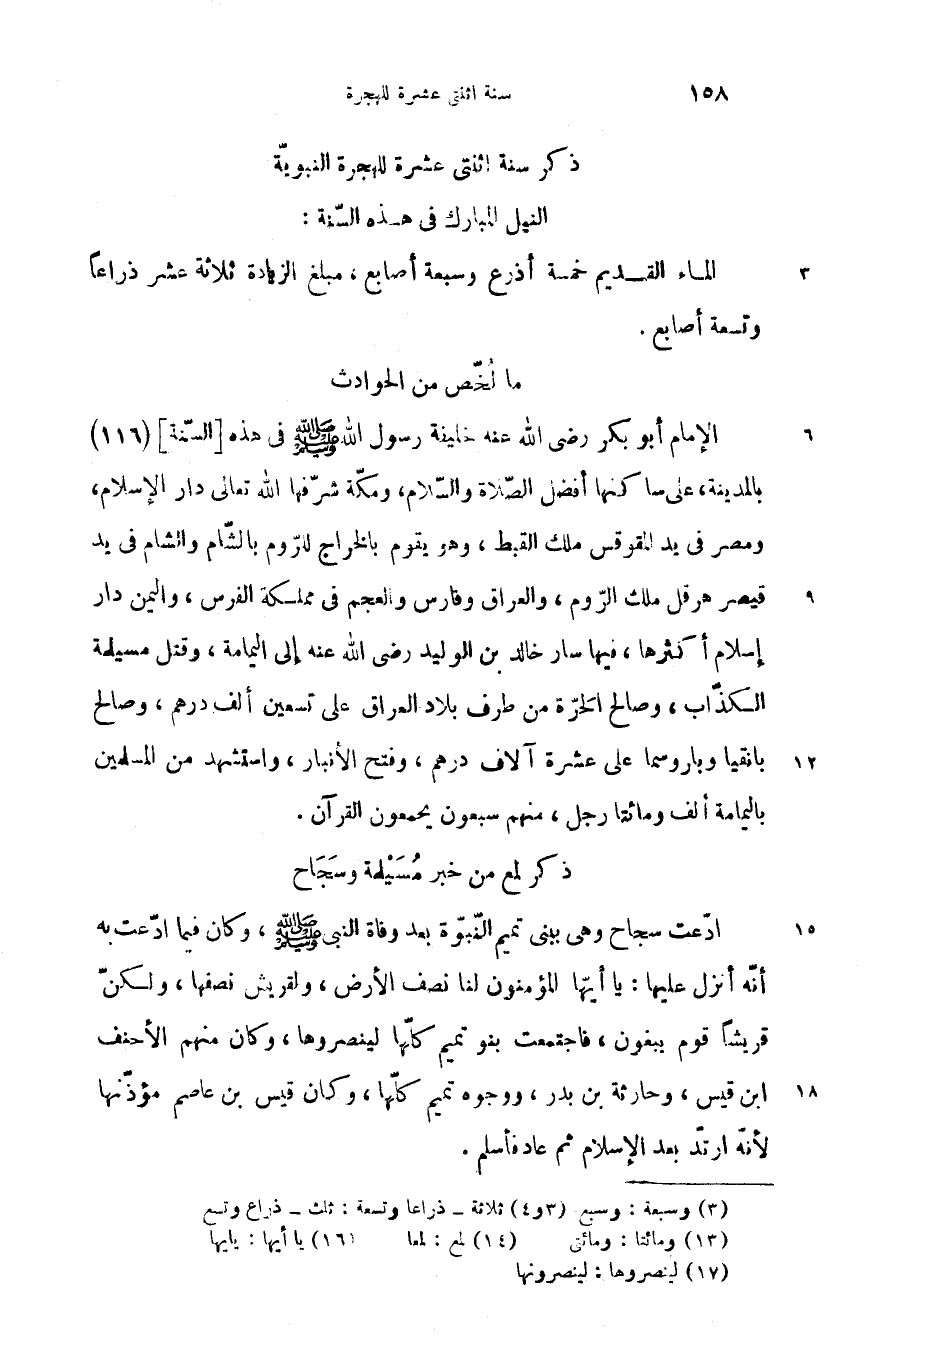 ١٥٨ سنة اثنتى عشرة للهجرة
ذكر سنة اثنتى عشرة للهجرة النبويّة
النيل المبارك فى هذه السّنة :
٣ الماء القديم خمسة أذرع وسبعة أصابع ، مبلغ الزيادة ثلاثة عشر ذراعاً
وتسعة أصابع .
ما لُخّص من الحوادث
٦ الإمام أبو بكر رضى الله عنه خليفة رسول الله ﷺ فى هذه [السّنة] (١١٦)
بالمدينة، على ساكنها أفضل الصّلاة والسّلام، ومكّة شرّفها الله تعالى دار الإسلام،
ومصر فى يد المقوقس ملك القبط ، وهو يقوم بالخراج للرّوم بالشّام والشام فى يد
٩ قيصر هرقل ملك الرّوم ، والعراق وفارس والعجم فى مملكة الفرس ، واليمن دار
إسلام أكثرها ، فيها سار خالد بن الوليد رضى الله عنه إلى اليمامة ، وقتل مسيلمة
الكذّاب ، وصالح الحرّة من طرف بلاد العراق على تسعين ألف درهم ، وصالح
١٢ بانقيا وباروسما على عشرة آلاف درهم ، وفتح الأنبار ، واستشهد من المسلمين
باليمامة ألف ومائتا رجل ، منهم سبعون يجمعون القرآن .
ذكر لمع من خبر مُسَيْلمة وسَجَاح
١٥ ادّعت سجاح وهى ببنى تميم النّبوّة بعد وفاة النبى ﷺ ، وكان فيما ادّعت به
أنّه أنزل عليها : يا أيّها المؤمنون لنا نصف الأرض ، ولقريش نصفها ، ولكنّ
قريشاً قوم يبغون ، فاجتمعت بنو تميم كلّها لينصروها ، وكان منهم الأحنف
١٨ ابن قيس ، وحارثة بن بدر ، ووجوه تميم كلّها ، وكان قيس بن عاصم مؤذّنها
لأنّه ارتدّ بعد الإسلام ثم عاد فأسلم .
(٣) وسبعة : وسبع (٣و٤) ثلاثة ــ ذراعا وتسعة : ثلث ــ ذراع وتسع
(١٣) ومائتا : ومائتى (١٤) لمع : لمعا (١٦) يا أيها : يايها
(١٧) لينصروها : لينصرونها